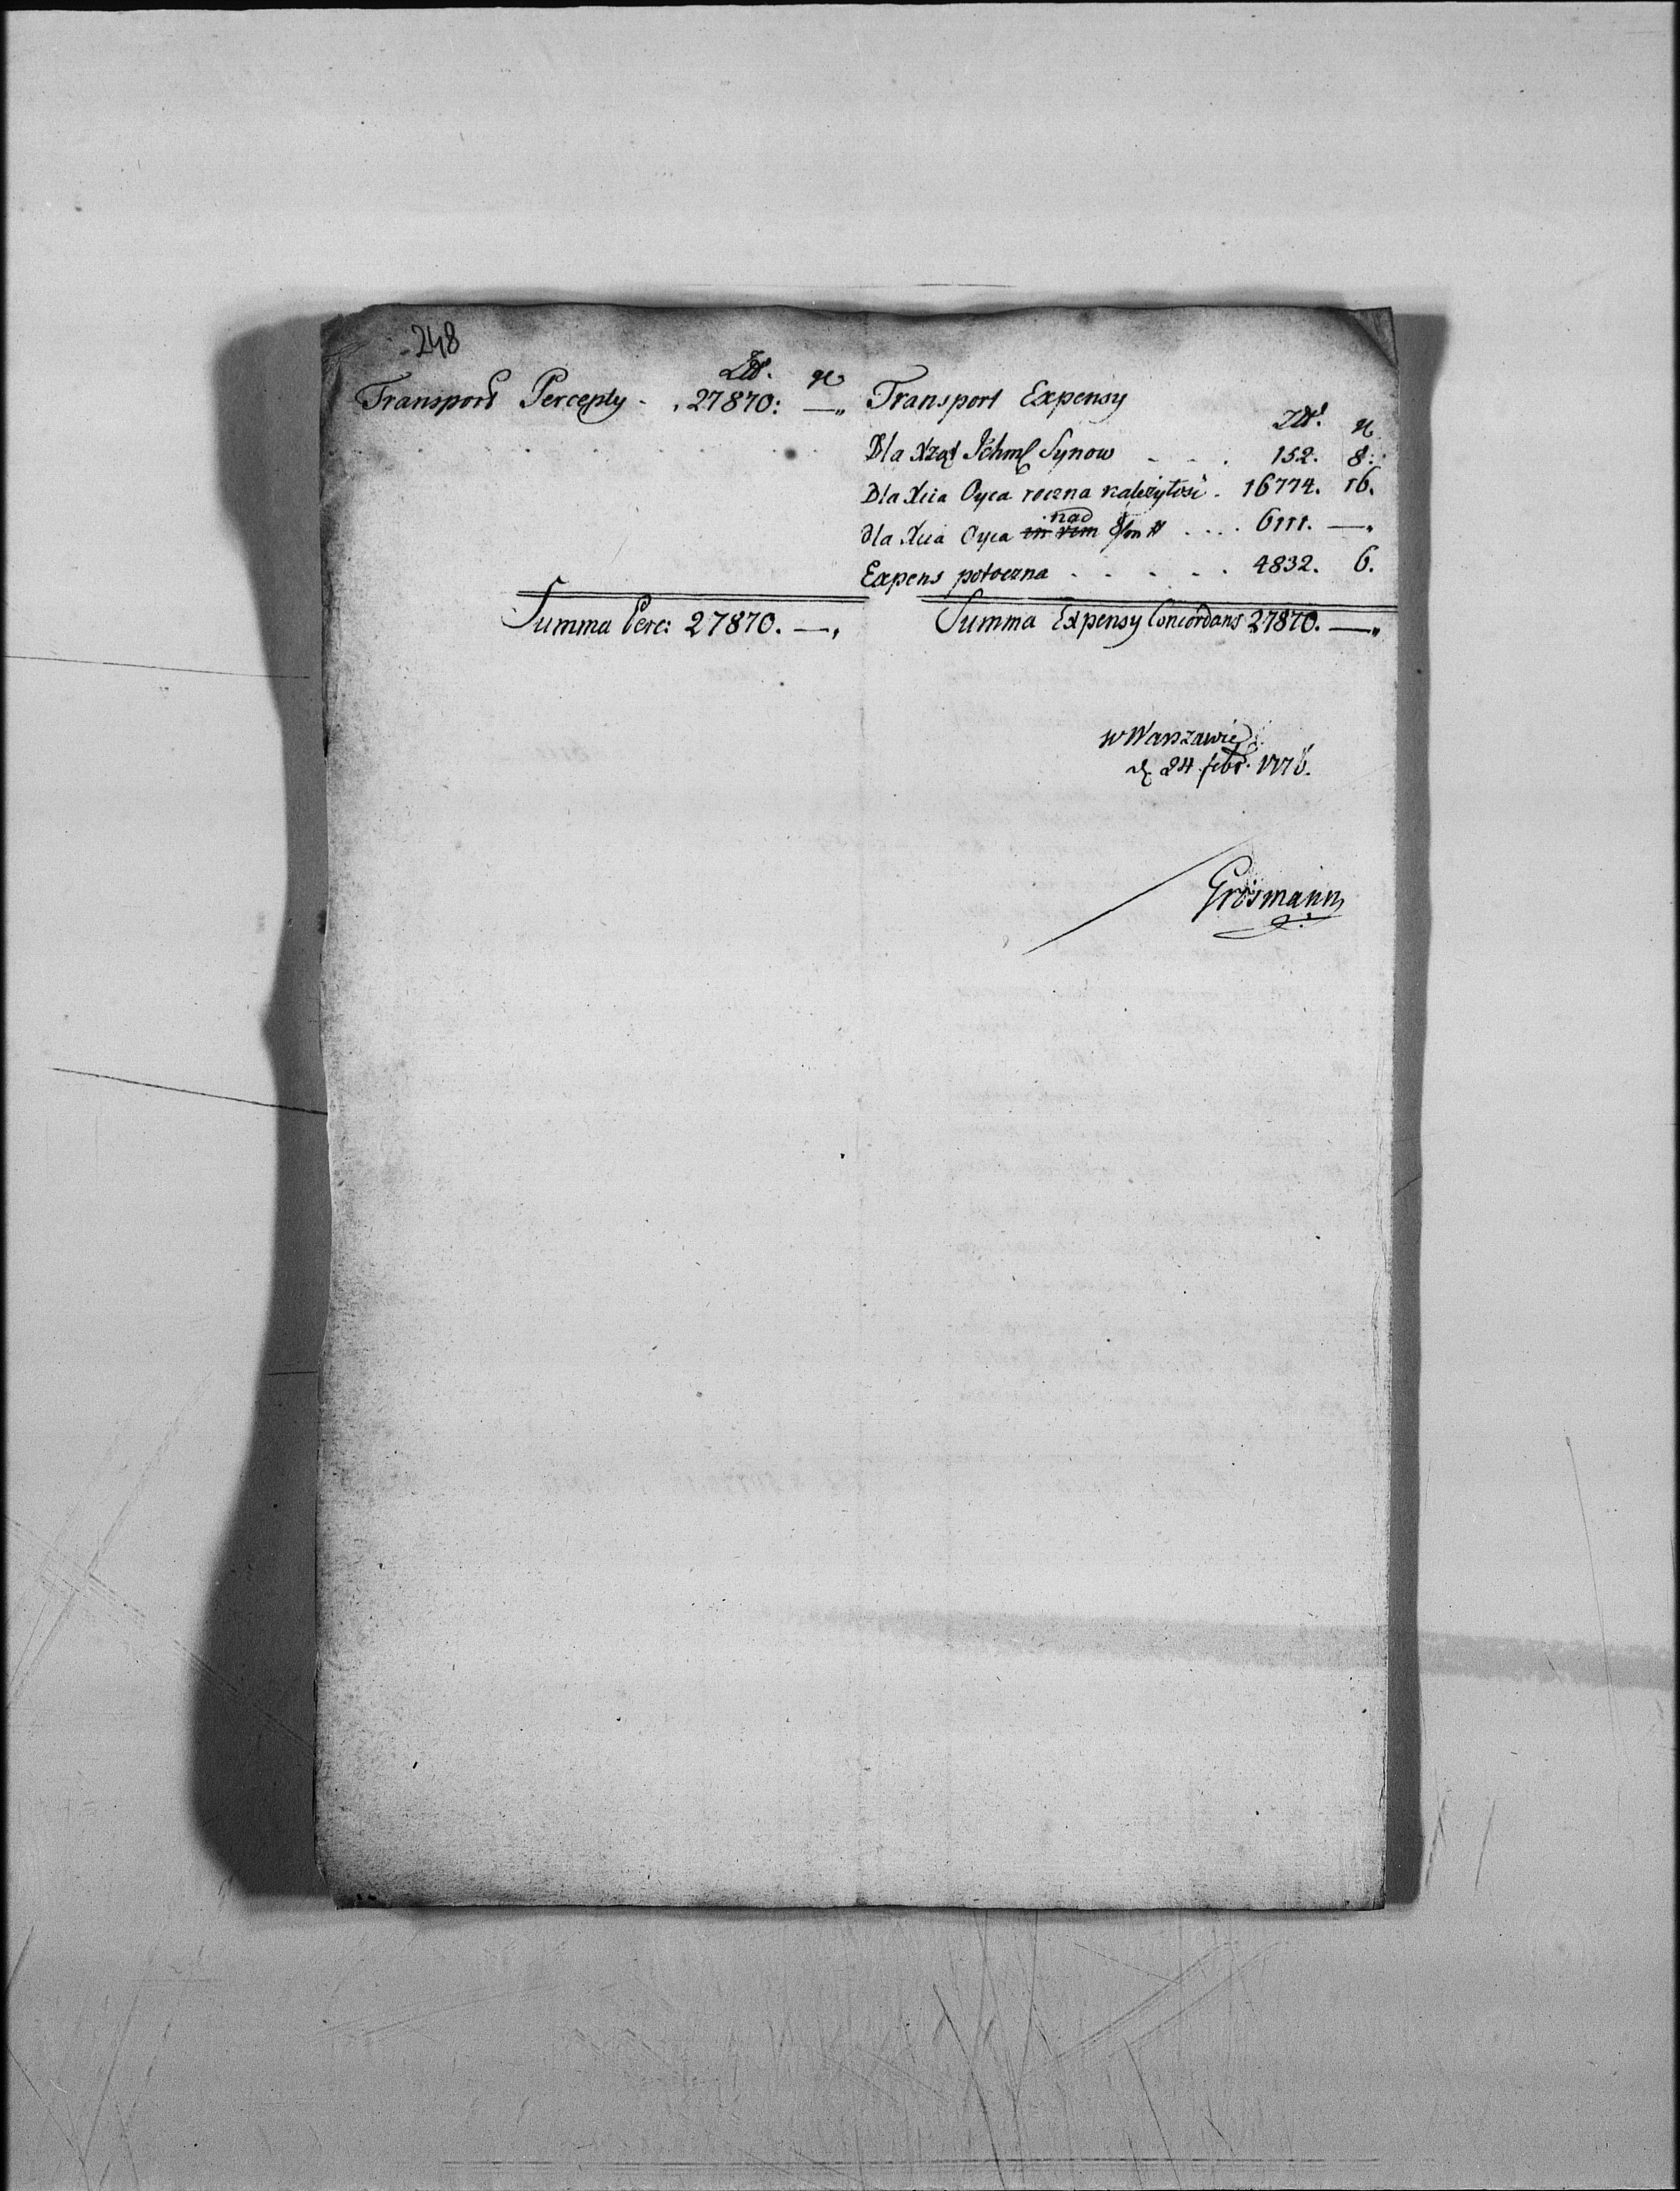 248
Złł. gr
Transport Percepty - . 27870: —„
Transport Expensy
Złł. gr
Dla Xżąt Ichmć Synow - - . 152. 8:
Dla Xcia Oyca roczna należytosć . 16774. 16.
nad
dla Xcia Oyca in vim .... 6111. —„
Expens potoczna . . . . . 4832. 6.
Summa Perc: 27870. —„
Summa Expensy Concordans 27870. —„
w Warszawie
d. 24 febr. 1776.
Grosmann